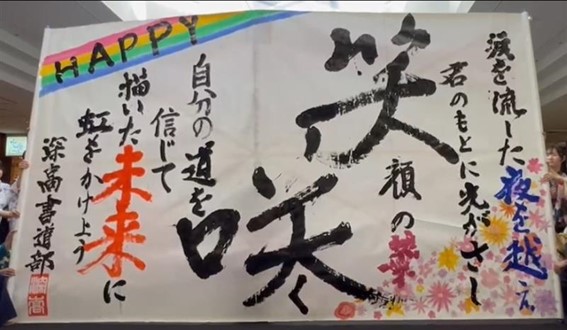 涙を流した夜を越え
君のもとに光がさし
笑顔の華
咲く
自分の道を
信じて
描いた未来に
虹をかけよう
深高書道部
HAPPY